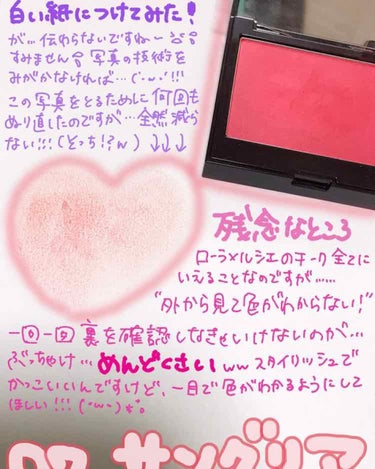 白い紙につけてみた!
が…伝わらないですね〜
すみません 写真の技術を
みがかなければ…(´·ω·`)!!!
この写真をとるために何回も
ぬり直したのですが…全然減ら
ない!!!(どっち!?ん)↓↓↓
残念なところ
ローラメルシエのチーク全てに
いえることなのですが……
"外から見て色がわからない!"
一回一回裏を確認しなきゃいけないのが…
ぶっちゃけ…めんどくさいwwスタイリッシュで
かっこいいんですけど、一目で色がわかるようにして
ほしい!!!(´·ω·`)
07 サングリア